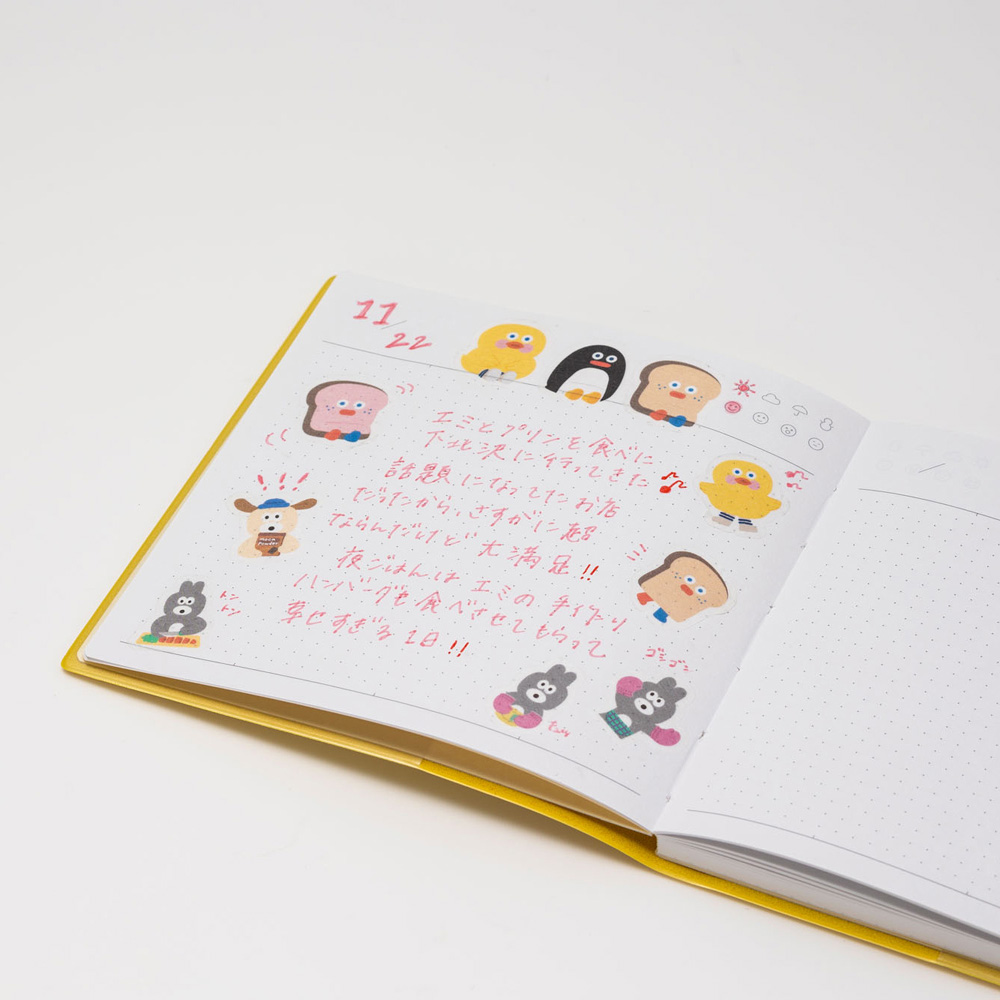 11/22
エミとプリンを食べに
下北沢に行ってきた♪
話題になってたお店
だったから、さすがに超
ならんだけど大満足!!
夜ごはんはエミの手作り
ハンバーグを食べさせてもらって
幸せすぎる1日!!
トン
トン
ゴシゴシ